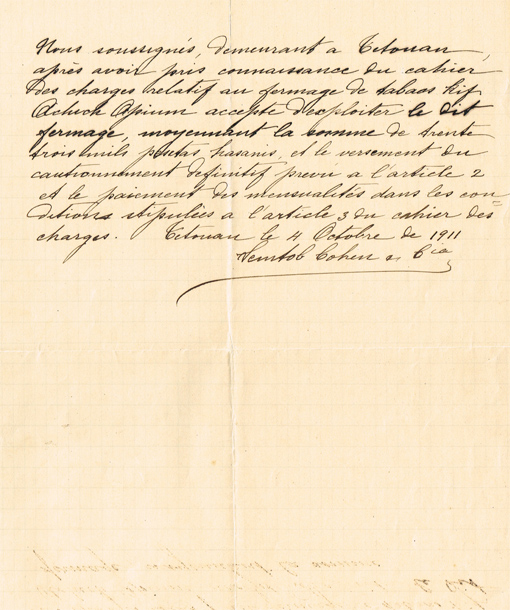 Nous soussignés, demeurant a Tetouan,
après avoir pris connaissance du cahier
des charges relatif au fermage de tabacs Kif
Achoch Apium accepte d'exploiter le dit
fermage, moyennant la somme de trente
trois mils pesetas hasanis, et le versement du
cautionnement definitif prevu a l'article 2
et le paiement des mensualités dans les con=
ditions stipulées a l'article 3 du cahier des
charges. Tetouan le 4 Octobre de 1911
Cohen & Cia